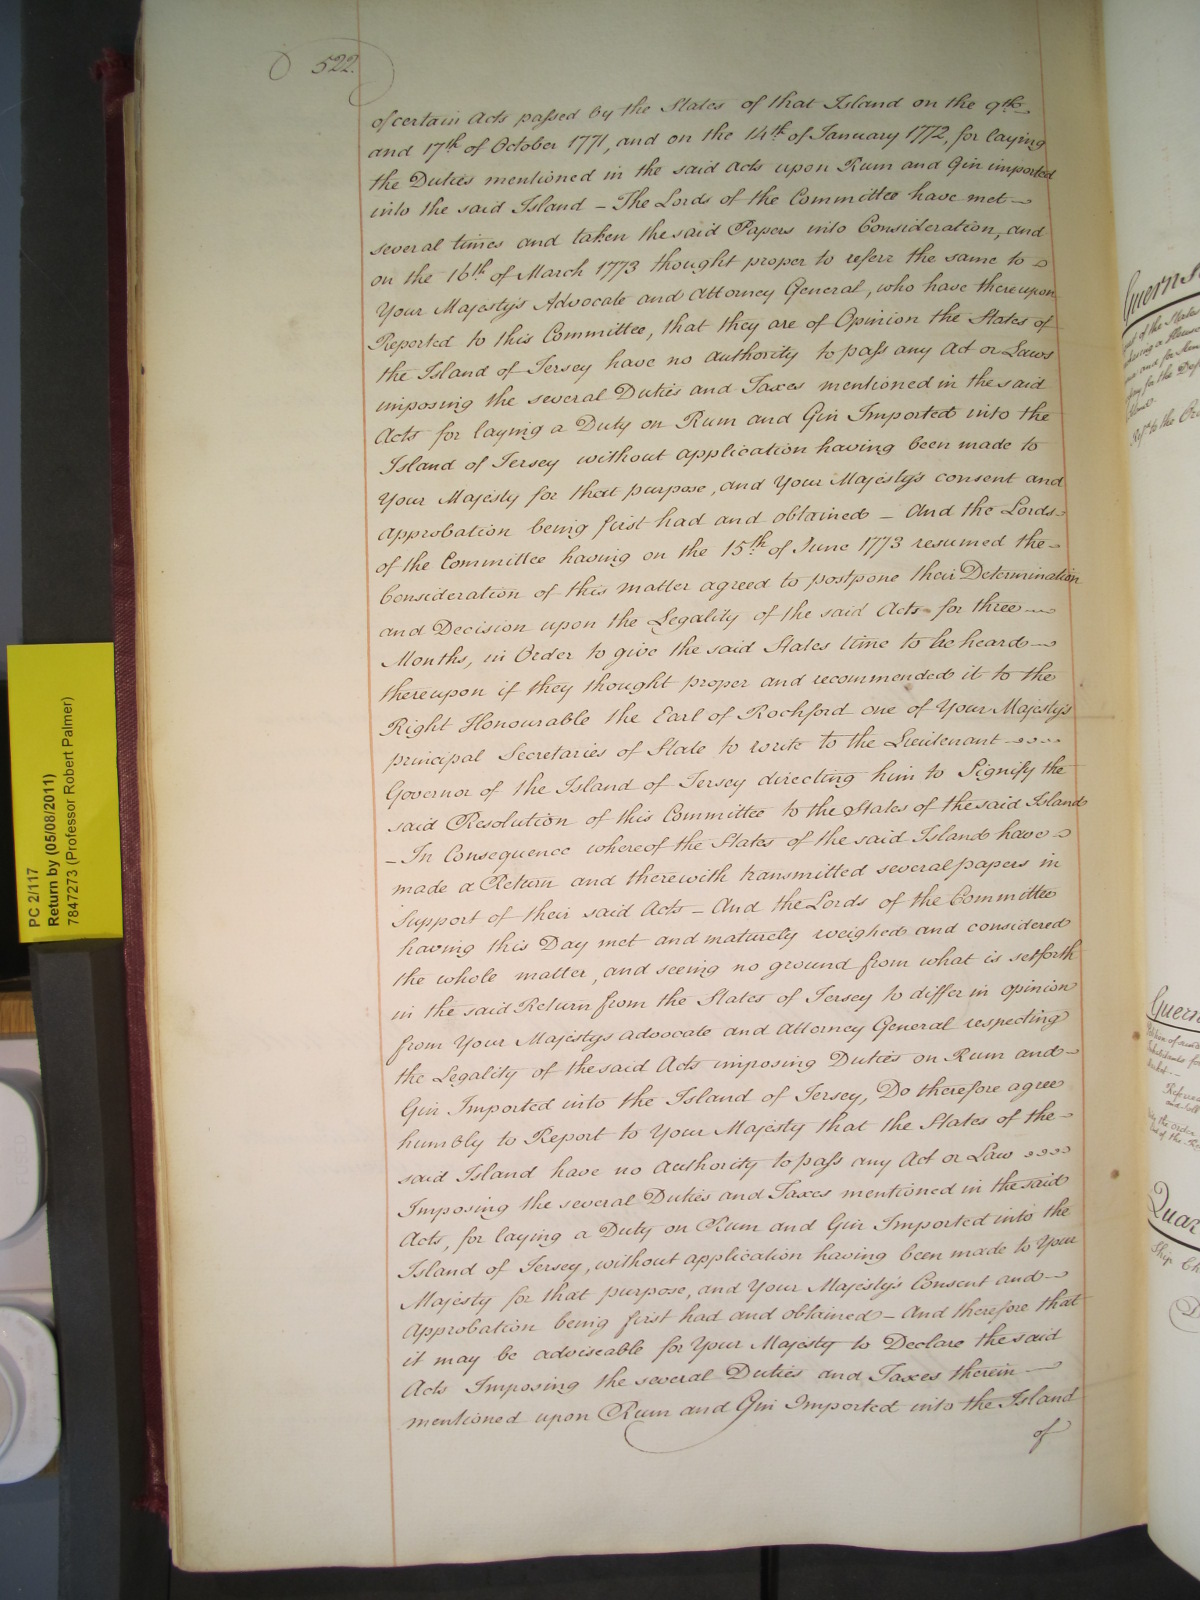 522.
of certain Acts passed by the States of that Island on the 9th
and 17th of October 1771, and on the 14th of January 1772, for laying
the Duties mentioned in the said Acts upon Rum and Gin imported
into the said Island – The Lords of the Committee have met
several times and taken the said Papers into Consideration, and
on the 16th of March 1773 thought proper to referr the same to
Your Majesty's Advocate and Attorney General, who have thereupon
Reported to this Committee, that they are of Opinion the States of
the Island of Jersey have no authority to pass any Act or Laws
imposing the several Duties and Taxes mentioned in the said
Acts for laying a Duty on Rum and Gin Imported into the
Island of Jersey without application having been made to
Your Majesty for that purpose, and Your Majesty's consent and
approbation being first had and obtained – And the Lords
of the Committee having on the 15th of June 1773 resumed the
Consideration of this matter agreed to postpone their Determination
and Decision upon the Legality of the said Acts for three
Months, in Order to give the said States time to be heard
thereupon if they thought proper and recommended it to the
Right Honourable the Earl of Rochford one of Your Majesty's
principal Secretaries of State to write to the Lieutenant
Governor of the Island of Jersey directing him to Signify the
said Resolution of this Committee to the States of the said Island
– In Consequence whereof the States of the said Island have
made a Return and therewith transmitted several papers in
Support of their said Acts – And the Lords of the Committee
having this Day met and maturely weighed and considered
the whole matter, and seeing no ground from what is setforth
in the said Return from the States of Jersey to differ in opinion
from Your Majestys advocate and Attorney General respecting
the Legality of the said Acts imposing Duties on Rum and
Gin Imported into the Island of Jersey, Do therefore agree
humbly to Report to Your Majesty that the States of the
said Island have no Authority to pass any Act or Law
Imposing the several Duties and Taxes mentioned in the said
Acts, for laying a Duty on Rum and Gin Imported into the
Island of Jersey, without application having been made to Your
Majesty for that purpose, and Your Majesty's Consent and
Approbation being first had and obtained – And therefore that
it may be adviseable for Your Majesty to Declare the said
Acts Imposing the several Duties and Taxes therein
mentioned upon Rum and Gin Imported into the Island
of
PC 2/117
Return by (05/08/2011)
7847273 (Professor Robert Palmer)